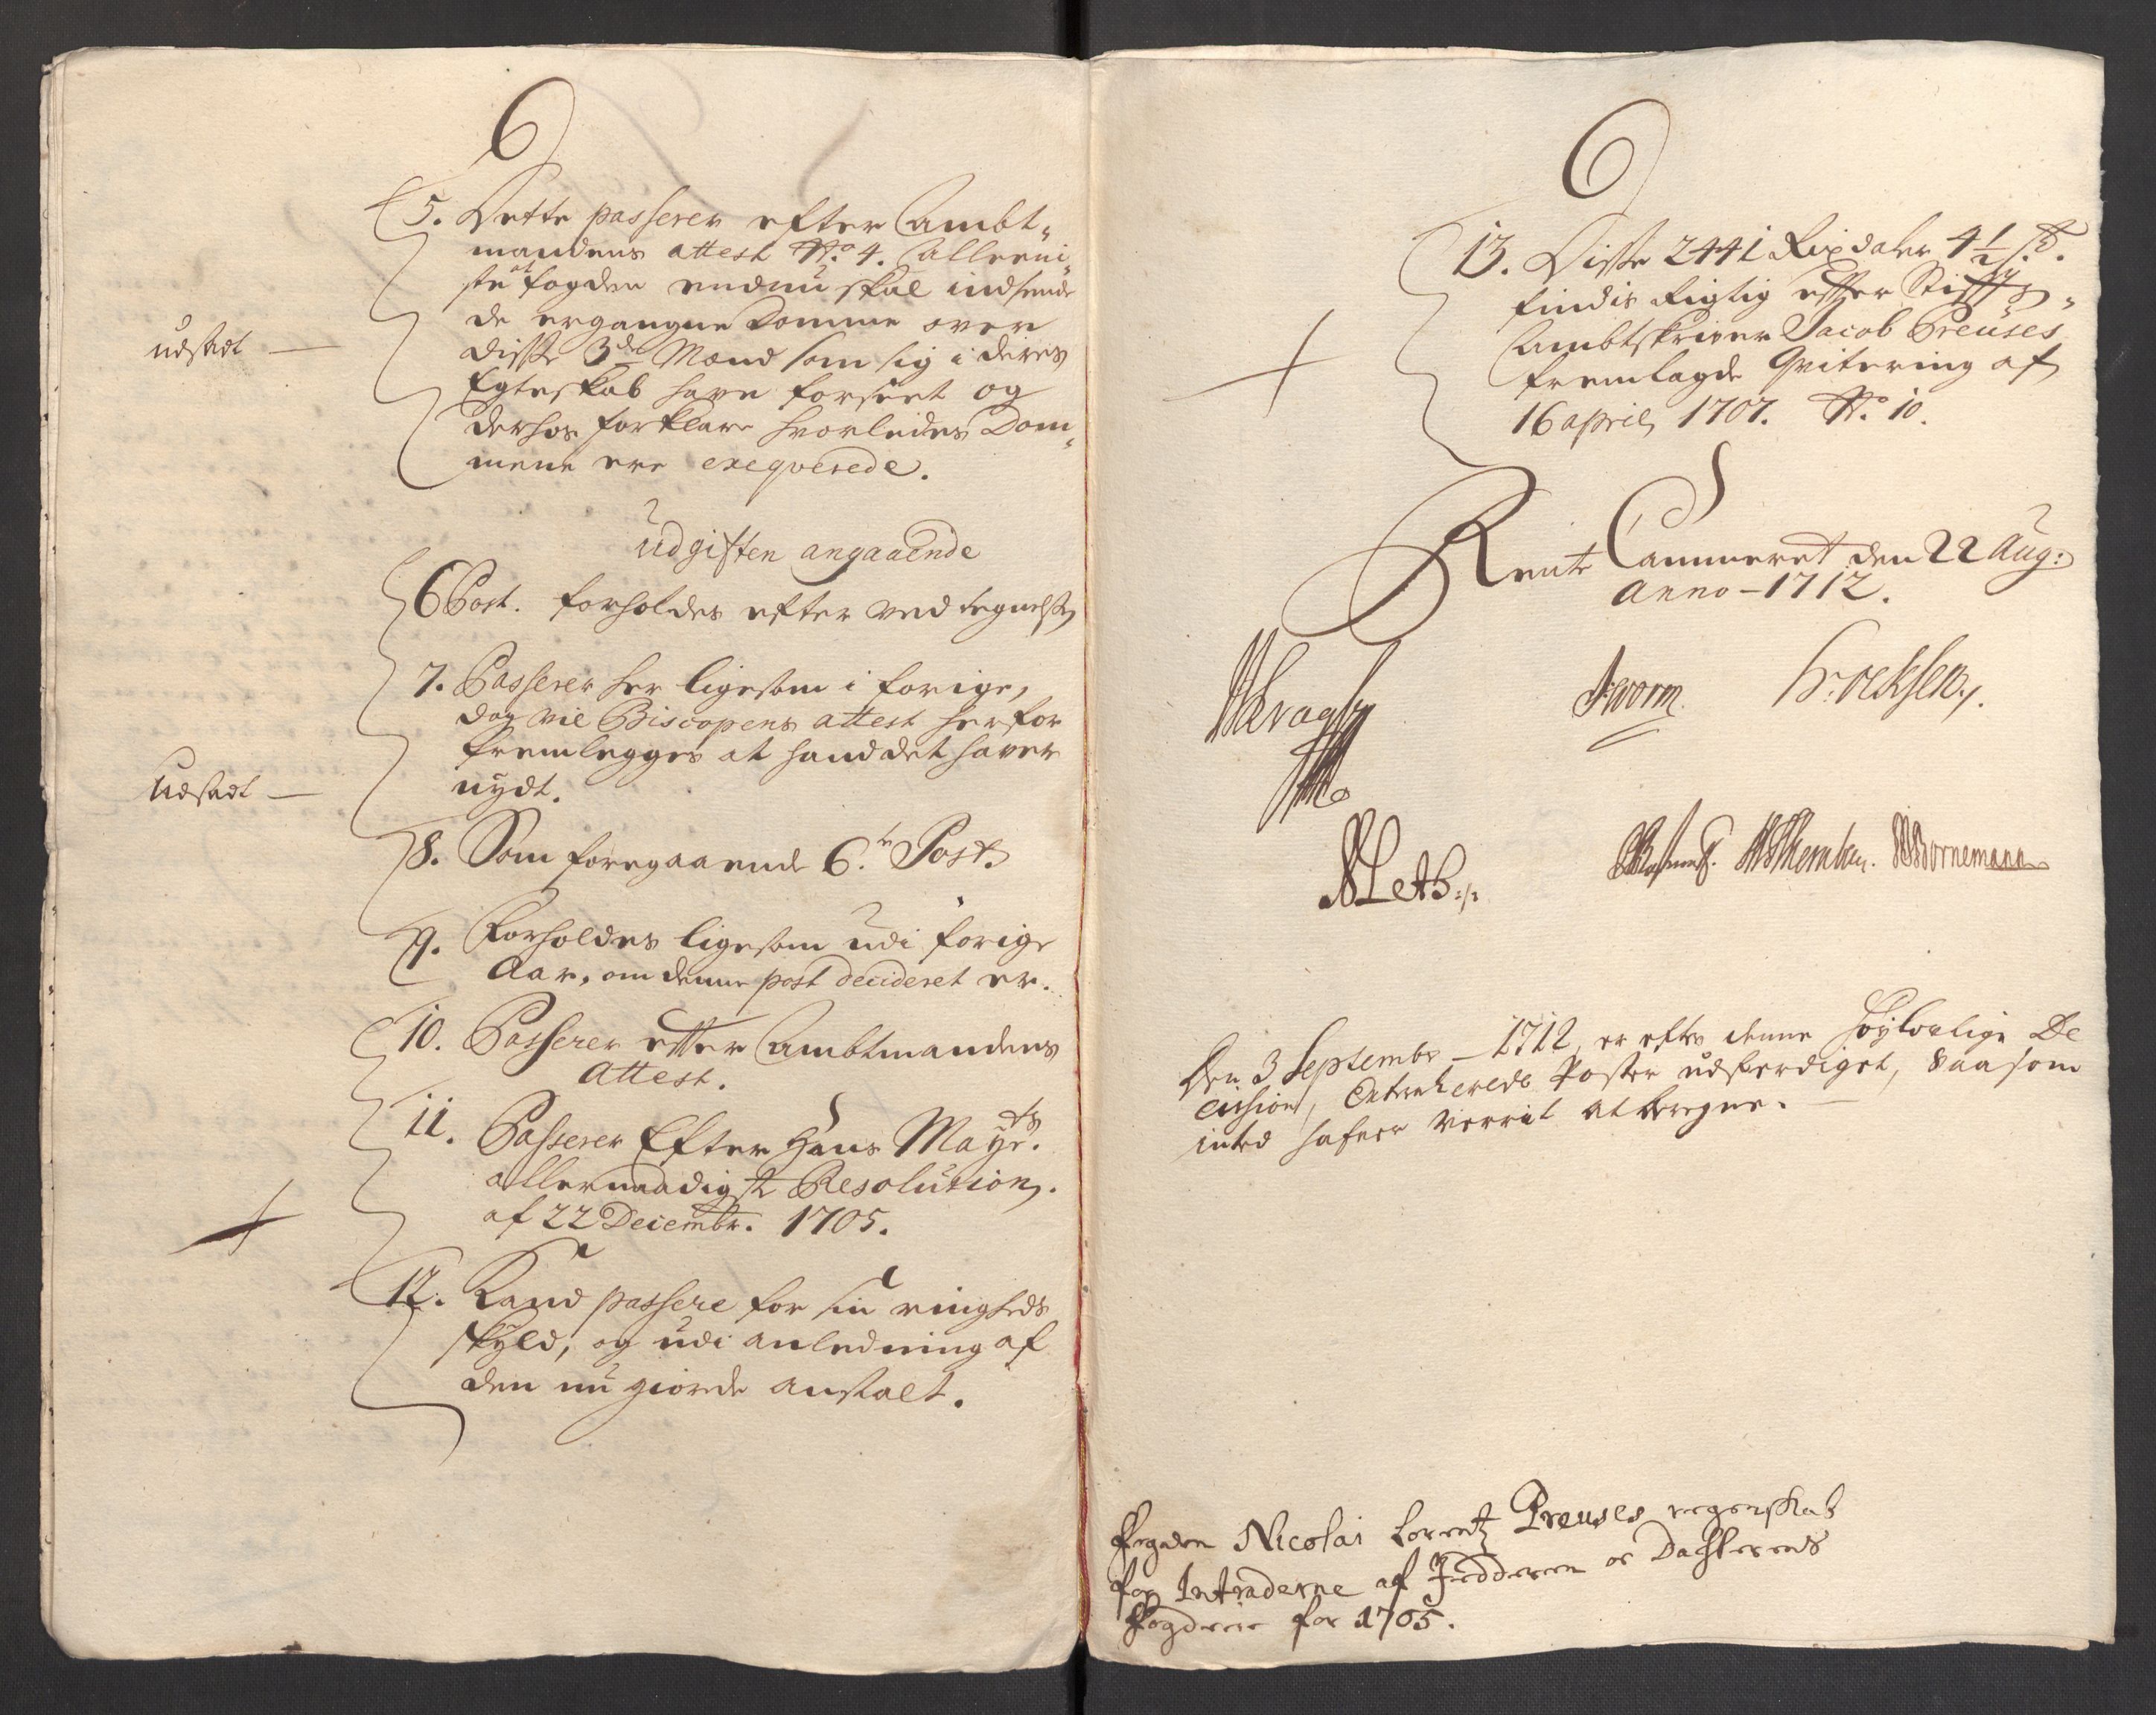 5. Dette passerer efter Ambt-
mandens attest No. 4. alleeni-
ste at fogden endnu skal indsende
de ergangne Domme over
disse 3de Mænd som sig i deres
Egteskab have forseet og
derhos forklare hvorledes Dom-
mene ere exeqverede.
udstædt —
Udgiften angaaende
6 Post. forholdes efter ved tegnelsen
7. Passerer her ligesom i forige,
dog vil Biscopens attest herfor
fremlegges at hand det haver
nydt.
Udstædt —
8. Som foregaaende 6.te Post.
9. Forholdes ligesom udi forige
Aar, om denne post decideret er.
10. Passerer efter Ambtmandens
Attest.
11. Passerer Efter Hans Mayts.
allernaadigste Resolution
af 22 Decembr. 1705.
12. Kand passere for sin ringheds
skyld, og udi anledning af
den nu giorde anstalt.
13. Disse 2441 Rixdaler 4½ ß.
findis Rigtig efter Stiffts-
Ambtskriver Jacob Preuses
fremlagde Qvitering af
16 april 1707. No. 10.
Rente Cammeret den 22 Aug:
Anno - 1712.
Worm.
Bornemann
Den 3 Septembr - 1712, er efter denne Høylovlige De
cision, Extraherede Poster udferdiget, Saasom
inted hafuer verrit at beregne.
Fogden Nicolai Lorentz Preuses regenskab
for Intraderne af Jedderen oc Dahlernes
Fogderie for 1705.